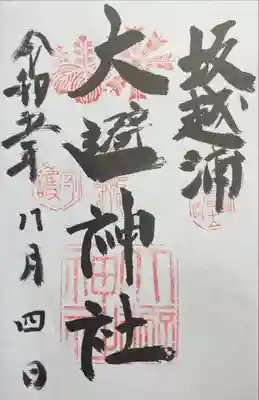 坂越浦
大避神社
令和五年
八月四日